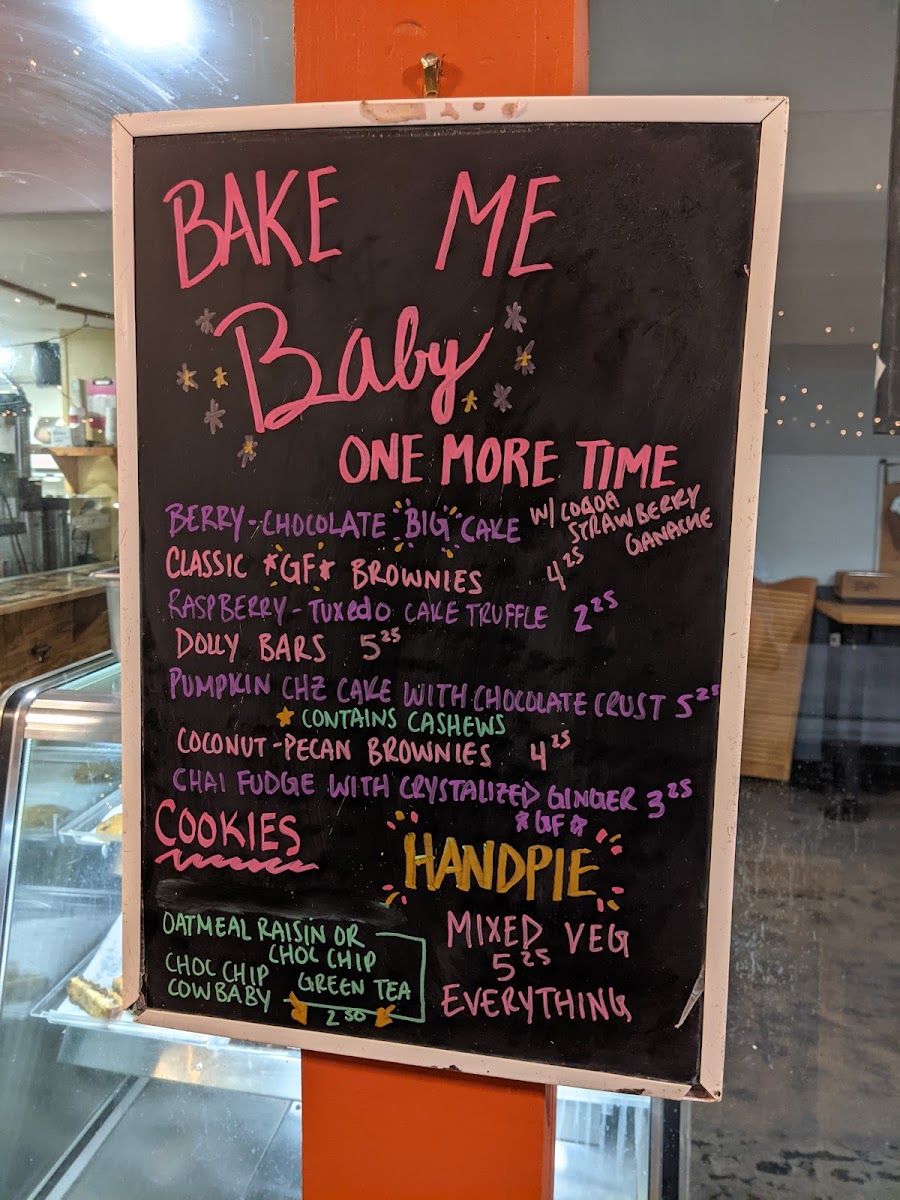 BAKE ME
Baby
ONE MORE TIME
BERRY-CHOCOLATE "BIG" CAKE W/ COCOA
STRAWBERRY
GANACHE
CLASSIC *GF* BROWNIES 4 25
RASPBERRY-TUXEDO CAKE TRUFFLE 2 25
DOLLY BARS 5 25
PUMPKIN CHZ CAKE WITH CHOCOLATE CRUST 5 25
* CONTAINS CASHEWS
COCONUT-PECAN BROWNIES 4 25
CHAI FUDGE WITH CRYSTALIZED GINGER 3 25
*GF*
COOKIES
OATMEAL RAISIN OR
CHOC CHIP
CHOC CHIP GREEN TEA
COWBABY
2 50
HANDPIE
MIXED VEG
5 25
EVERYTHING